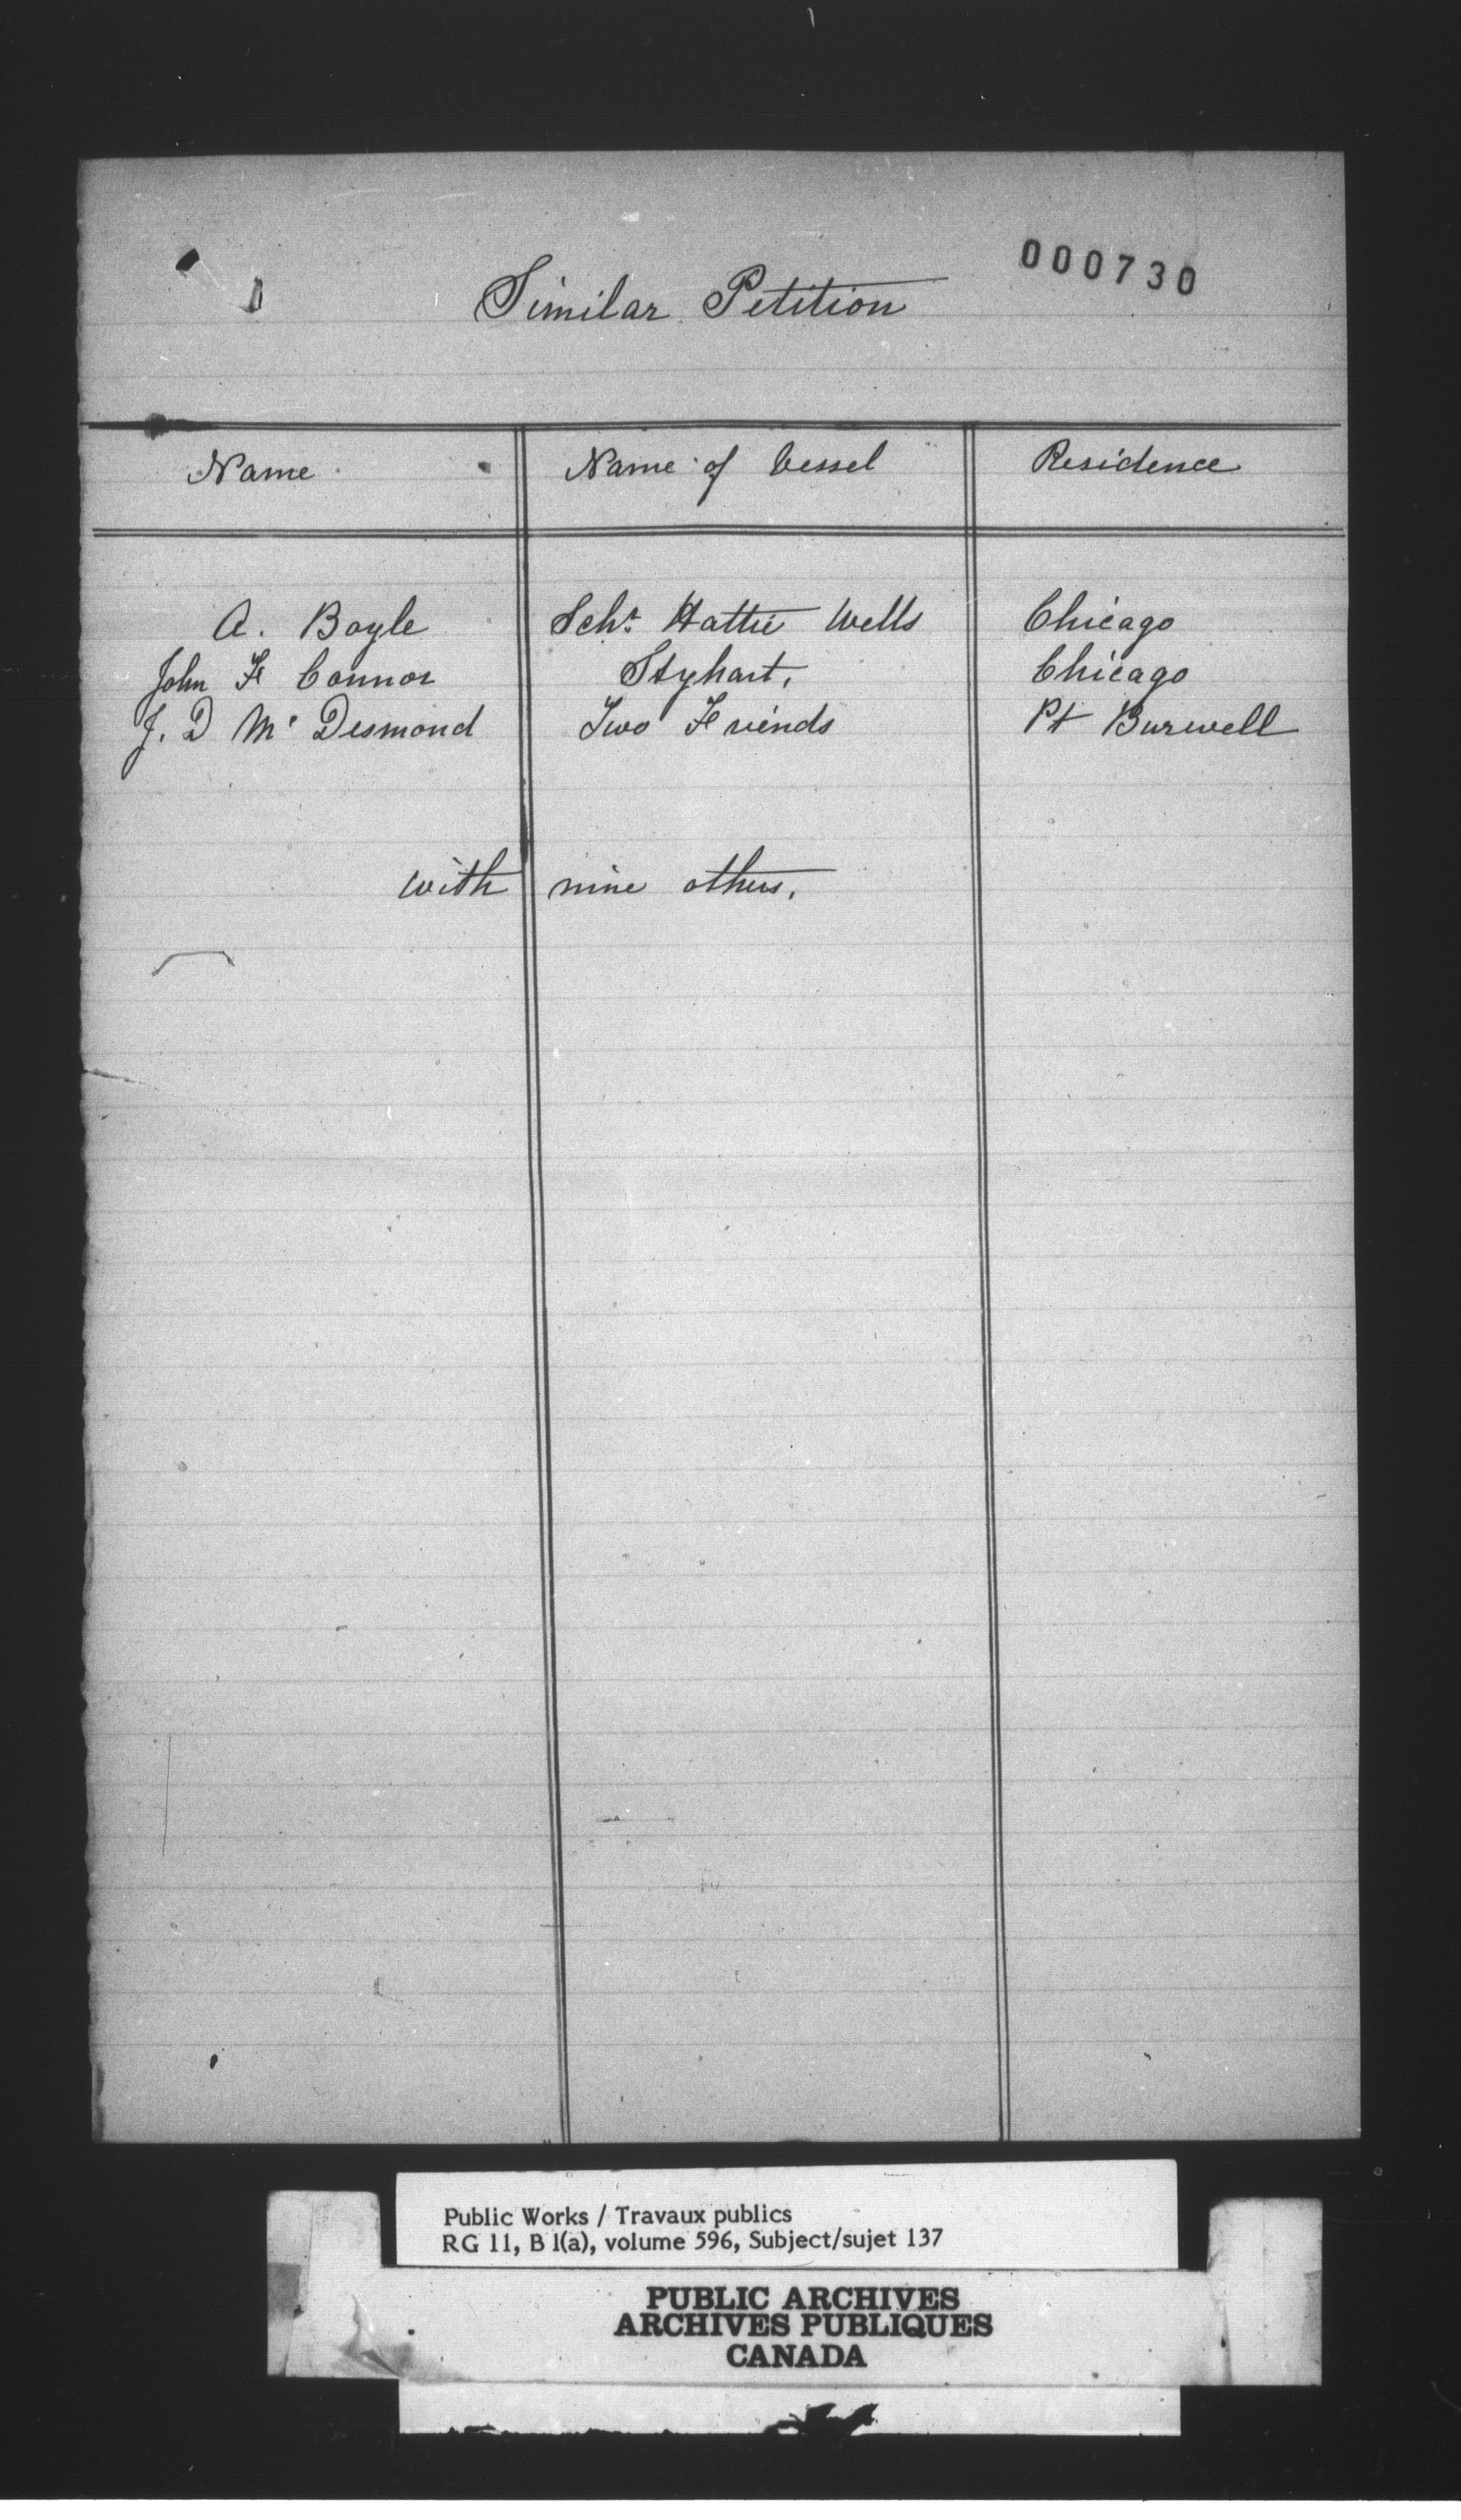 000730
Similar Petition
Name Name of Vessel Residence
A. Boyle Schr. Hattie Wells Chicago
John F Connor Styhart, Chicago
J. D Mc Desmond Two Friends Pt Burwell
with nine others.
Public Works / Travaux publics
RG 11, B 1(a), volume 596, Subject/sujet 137
PUBLIC ARCHIVES
ARCHIVES PUBLIQUES
CANADA